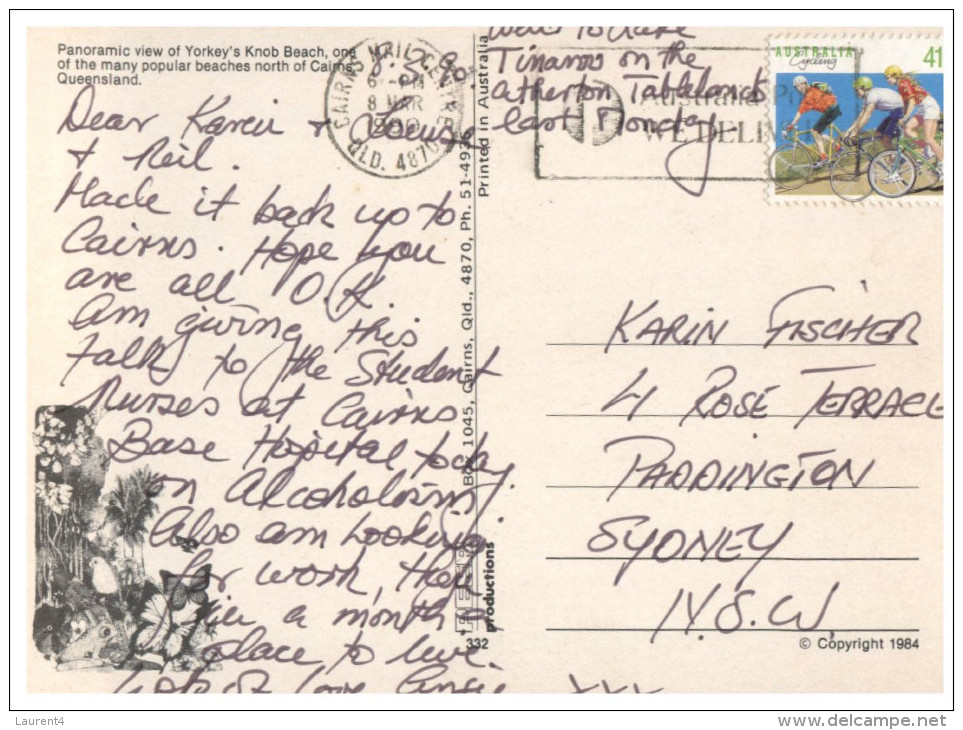 Panoramic view of Yorkey's Knob Beach, one
of the many popular beaches north of Cairns,
Queensland.
CAIRNS MAIL CENTRE
8 MAR
QLD. 4870
Tinaroo on the
Atherton Tableland
last Monday.
Australia Po
WE DELI
AUSTRALIA
Cycling
41
Dear Karen &
& Neil.
Made it back up to
Cairns. Hope you
are all O.K.
Am giving this
talk to the Student
Nurses at Cairns
Base Hospital today
on Alcoholism.
Also am looking
for work, then
a month
place to live.
Lots of love
XXX
BOX 1045, Cairns, Qld., 4870, Ph. 51-4936
Printed in Australia
productions
332
KARIN FISCHER
41 ROSE TERRACE
PADDINGTON
SYDNEY
N.S.W.
© Copyright 1984
Laurent4
www.delcampe.net